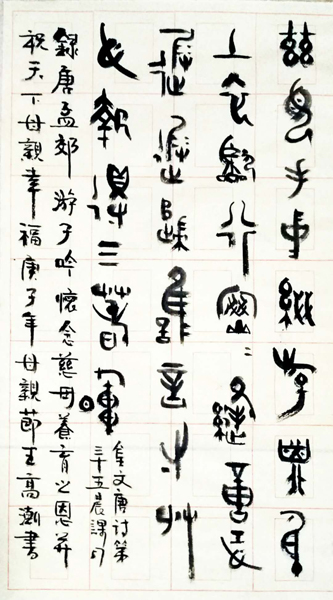 慈母手中線游子身
上衣臨行密=縫意恐
遲遲歸誰言寸草
心報得三春暉
金文唐詩第
三十五晨課
錄唐孟郊游子吟懷念慈母養育之恩并
祝天下母親幸福庚子年母親節王高潮書